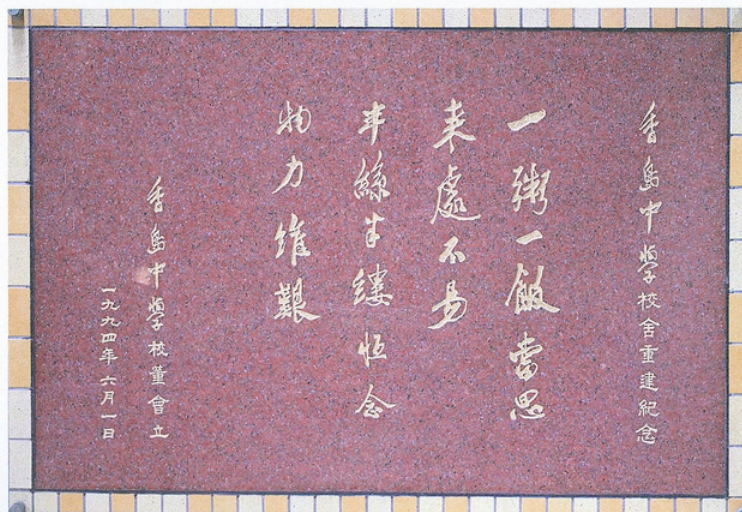 香島中學校舍重建紀念
一粥一飯當思
來處不易
半絲半縷恒念
物力維艱
香島中學校董會立
一九九四年六月一日